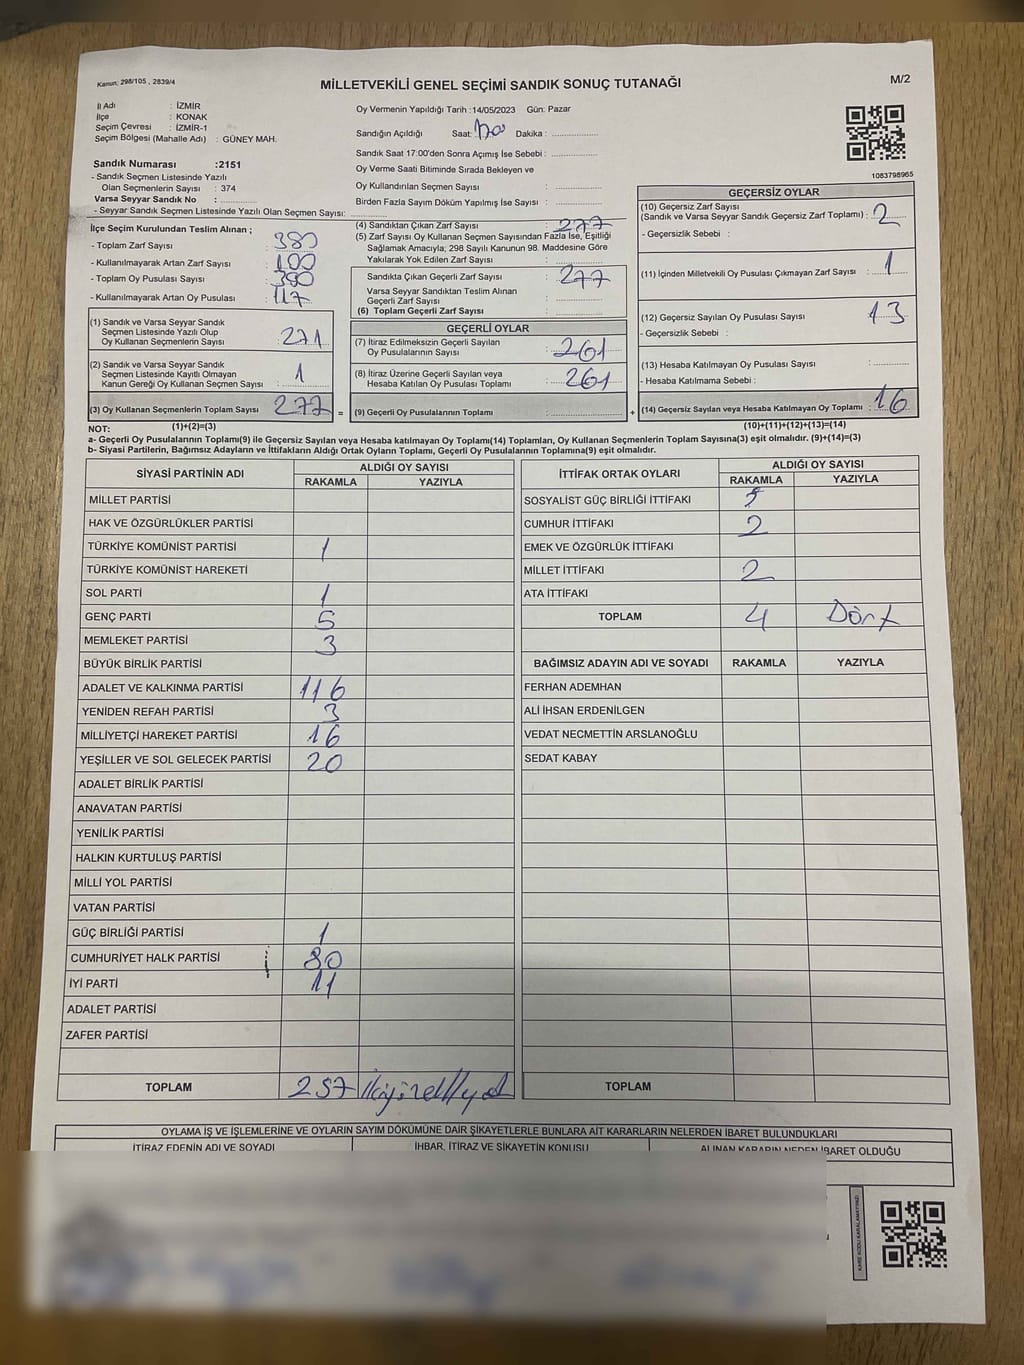 Kanun: 298/105 , 2839/4
MİLLETVEKİLİ GENEL SEÇİMİ SANDIK SONUÇ TUTANAĞI
M/2
İl Adı : İZMİR
İlçe : KONAK
Seçim Çevresi : İZMİR-1
Seçim Bölgesi (Mahalle Adı) : GÜNEY MAH.
Sandık Numarası :2151
- Sandık Seçmen Listesinde Yazılı
Olan Seçmenlerin Sayısı : 374
Varsa Seyyar Sandık No :
- Seyyar Sandık Seçmen Listesinde Yazılı Olan Seçmen Sayısı:
Oy Vermenin Yapıldığı Tarih :14/05/2023 Gün: Pazar
Sandığın Açıldığı Saat: Dakika :
Sandık Saat 17:00'den Sonra Açımış İse Sebebi :
Oy Verme Saati Bitiminde Sırada Bekleyen ve
Oy Kullandırılan Seçmen Sayısı :
Birden Fazla Sayım Döküm Yapılmış İse Sayısı :
1083798965
İlçe Seçim Kurulundan Teslim Alınan ;
- Toplam Zarf Sayısı : 380
- Kullanılmayarak Artan Zarf Sayısı : 100
- Toplam Oy Pusulası Sayısı : 380
- Kullanılmayarak Artan Oy Pusulası : 117
(1) Sandık ve Varsa Seyyar Sandık
Seçmen Listesinde Yazılı Olup
Oy Kullanan Seçmenlerin Sayısı : 271
(2) Sandık ve Varsa Seyyar Sandık
Seçmen Listesinde Kayıtlı Olmayan
Kanun Gereği Oy Kullanan Seçmen Sayısı : 1
(3) Oy Kullanan Seçmenlerin Toplam Sayısı : 277 =
(4) Sandıktan Çıkan Zarf Sayısı : 277
(5) Zarf Sayısı Oy Kullanan Seçmen Sayısından Fazla İse, Eşitliği
Sağlamak Amacıyla; 298 Sayılı Kanunun 98. Maddesine Göre
Yakılarak Yok Edilen Zarf Sayısı :
Sandıkta Çıkan Geçerli Zarf Sayısı : 277
Varsa Seyyar Sandıktan Teslim Alınan
Geçerli Zarf Sayısı :
(6) Toplam Geçerli Zarf Sayısı :
GEÇERLİ OYLAR
(7) İtiraz Edilmeksizin Geçerli Sayılan
Oy Pusulalarının Sayısı : 261
(8) İtiraz Üzerine Geçerli Sayılan veya
Hesaba Katılan Oy Pusulası Toplamı : 261
(9) Geçerli Oy Pusulalarının Toplamı : +
GEÇERSİZ OYLAR
(10) Geçersiz Zarf Sayısı
(Sandık ve Varsa Seyyar Sandık Geçersiz Zarf Toplamı) : 2
- Geçersizlik Sebebi :
(11) İçinden Milletvekili Oy Pusulası Çıkmayan Zarf Sayısı : 1
(12) Geçersiz Sayılan Oy Pusulası Sayısı : 13
- Geçersizlik Sebebi :
(13) Hesaba Katılmayan Oy Pusulası Sayısı :
- Hesaba Katılmama Sebebi :
(14) Geçersiz Sayılan veya Hesaba Katılmayan Oy Toplamı : 16
NOT: (1)+(2)=(3) (10)+(11)+(12)+(13)=(14)
a- Geçerli Oy Pusulalarının Toplamı(9) ile Geçersiz Sayılan veya Hesaba katılmayan Oy Toplamı(14) Toplamları, Oy Kullanan Seçmenlerin Toplam Sayısına(3) eşit olmalıdır. (9)+(14)=(3)
b- Siyasi Partilerin, Bağımsız Adayların ve İttifakların Aldığı Ortak Oyların Toplamı, Geçerli Oy Pusulalarının Toplamına(9) eşit olmalıdır.
SİYASİ PARTİNİN ADI ALDIĞI OY SAYISI
RAKAMLA YAZIYLA
MİLLET PARTİSİ
HAK VE ÖZGÜRLÜKLER PARTİSİ
TÜRKİYE KOMÜNİST PARTİSİ 1
TÜRKİYE KOMÜNİST HAREKETİ
SOL PARTİ 1
GENÇ PARTİ 5
MEMLEKET PARTİSİ 3
BÜYÜK BİRLİK PARTİSİ
ADALET VE KALKINMA PARTİSİ 116
YENİDEN REFAH PARTİSİ 3
MİLLİYETÇİ HAREKET PARTİSİ 16
YEŞİLLER VE SOL GELECEK PARTİSİ 20
ADALET BİRLİK PARTİSİ
ANAVATAN PARTİSİ
YENİLİK PARTİSİ
HALKIN KURTULUŞ PARTİSİ
MİLLİ YOL PARTİSİ
VATAN PARTİSİ
GÜÇ BİRLİĞİ PARTİSİ 1
CUMHURİYET HALK PARTİSİ 80
İYİ PARTİ 11
ADALET PARTİSİ
ZAFER PARTİSİ
TOPLAM 257
İTTİFAK ORTAK OYLARI ALDIĞI OY SAYISI
RAKAMLA YAZIYLA
SOSYALİST GÜÇ BİRLİĞİ İTTİFAKI
CUMHUR İTTİFAKI 2
EMEK VE ÖZGÜRLÜK İTTİFAKI
MİLLET İTTİFAKI 2
ATA İTTİFAKI
TOPLAM 4 Dört
BAĞIMSIZ ADAYIN ADI VE SOYADI RAKAMLA YAZIYLA
FERHAN ADEMHAN
ALİ İHSAN ERDENİLGEN
VEDAT NECMETTİN ARSLANOĞLU
SEDAT KABAY
TOPLAM
OYLAMA İŞ VE İŞLEMLERİNE VE OYLARIN SAYIM DÖKÜMÜNE DAİR ŞİKAYETLERLE BUNLARA AİT KARARLARIN NELERDEN İBARET BULUNDUKLARI
İTİRAZ EDENİN ADI VE SOYADI İHBAR, İTİRAZ VE ŞİKAYETİN KONUSU ALINAN KARARIN NEDEN İBARET OLDUĞU
KARE KODU KARALAMAYINIZ!